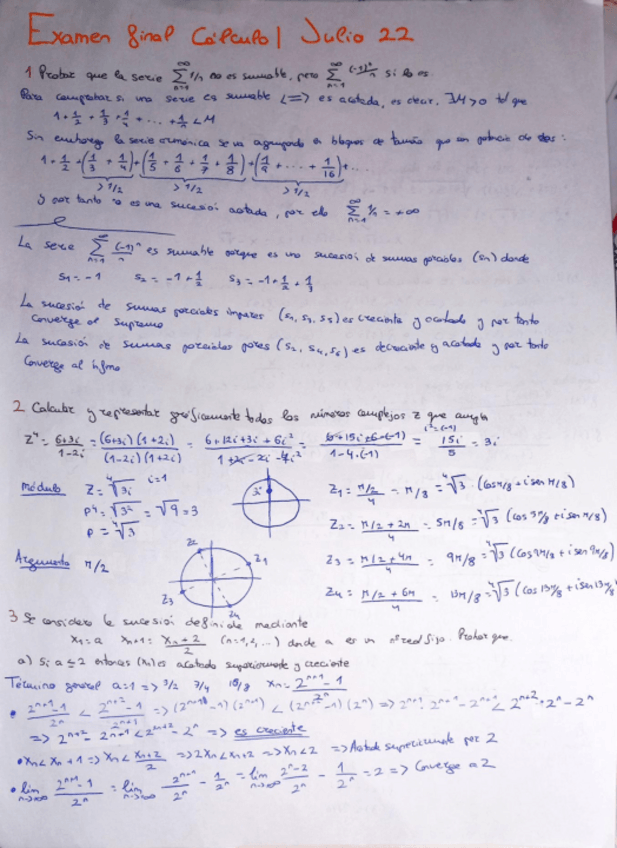 Examen final Cálculo I Julio 22
1 Probar que la serie ∑_{n=1}^{∞} 1/n no es sumable, pero ∑_{n=1}^{∞} (-1)^n/n sí lo es.
Para comprobar si una serie es sumable <=> es acotada, es decir, ∃M>0 tal que
1 + 1/2 + 1/3 + 1/4 + ... + 1/n < M
Sin embargo la serie armónica se va agrupando en bloques de tamaño que son potencia de dos:
1 + 1/2 + (1/3 + 1/4) + (1/5 + 1/6 + 1/7 + 1/8) + (1/9 + ... + 1/16) + ...
>1/2 >1/2 >1/2
y por tanto no es una sucesión acotada, por ello ∑_{n=1}^{∞} 1/n = +∞
La serie ∑_{n=1}^{∞} (-1)^n/n es sumable porque es una sucesión de sumas parciales (sn) donde
s1 = -1 s2 = -1 + 1/2 s3 = -1 + 1/2 + 1/3
La sucesión de sumas parciales impares (s1, s3, s5) es creciente y acotada y por tanto
converge al supremo
La sucesión de sumas parciales pares (s2, s4, s6) es decreciente y acotada y por tanto
converge al ínfimo
2 Calcular y representar gráficamente todos los números complejos z que cumplen
Z^4 = (6+3i)/(1-2i) = (6+3i)(1+2i)/((1-2i)(1+2i)) = (6+12i+3i+6i²)/(1+2i-2i-4i²) = (6+15i+6·(-1))/(1-4·(-1)) = 15i/5 = 3i
i²=(-1)
Módulo Z = ⁴√3i i=1
ρ^4 = √3² = √9 = 3
ρ = ⁴√3
3i
Argumento π/2
Z2 Z1 Z3 Z4
Z1 = (π/2)/4 = π/8 = ⁴√3 (cos π/8 + i sen π/8)
Z2 = (π/2 + 2π)/4 = 5π/8 = ⁴√3 (cos 5π/8 + i sen π/8)
Z3 = (π/2 + 4π)/4 = 9π/8 = ⁴√3 (cos 9π/8 + i sen 9π/8)
Z4 = (π/2 + 6π)/4 = 13π/8 = ⁴√3 (cos 13π/8 + i sen 13π/8
3 Se considera la sucesión definida mediante
x1 = a xn+1 = (xn + 2)/2 (n=1,2,...) donde a es un nº real fijo. Probar que.
a) Si a ≤ 2 entonces (xn) es acotada superiormente y creciente
Término general a=1 => 3/2 7/4 15/8 xn = (2^{n+1} - 1)/2^n
• (2^{n+1} - 1)/2^n < (2^{n+2} - 1)/2^{n+1} => (2^{n+1} - 1)(2^{n+1}) < (2^{n+2} - 1)(2^n) => 2^{n+1} · 2^{n+1} - 2^{n+1} < 2^{n+2} · 2^n - 2^n
=> 2^{n+2} - 2^{n+1} < 2^{n+2} - 2^n => es creciente
• xn < xn+1 => xn < (xn + 2)/2 => 2xn < xn + 2 => xn < 2 => Acotada superiormente por 2
• lim_{n→∞} (2^{n+1} - 1)/2^n = lim_{n→∞} 2^{n+1}/2^n - 1/2^n = lim_{n→∞} (2^n-2)/2^n - 1/2^n = 2 => Converge a 2